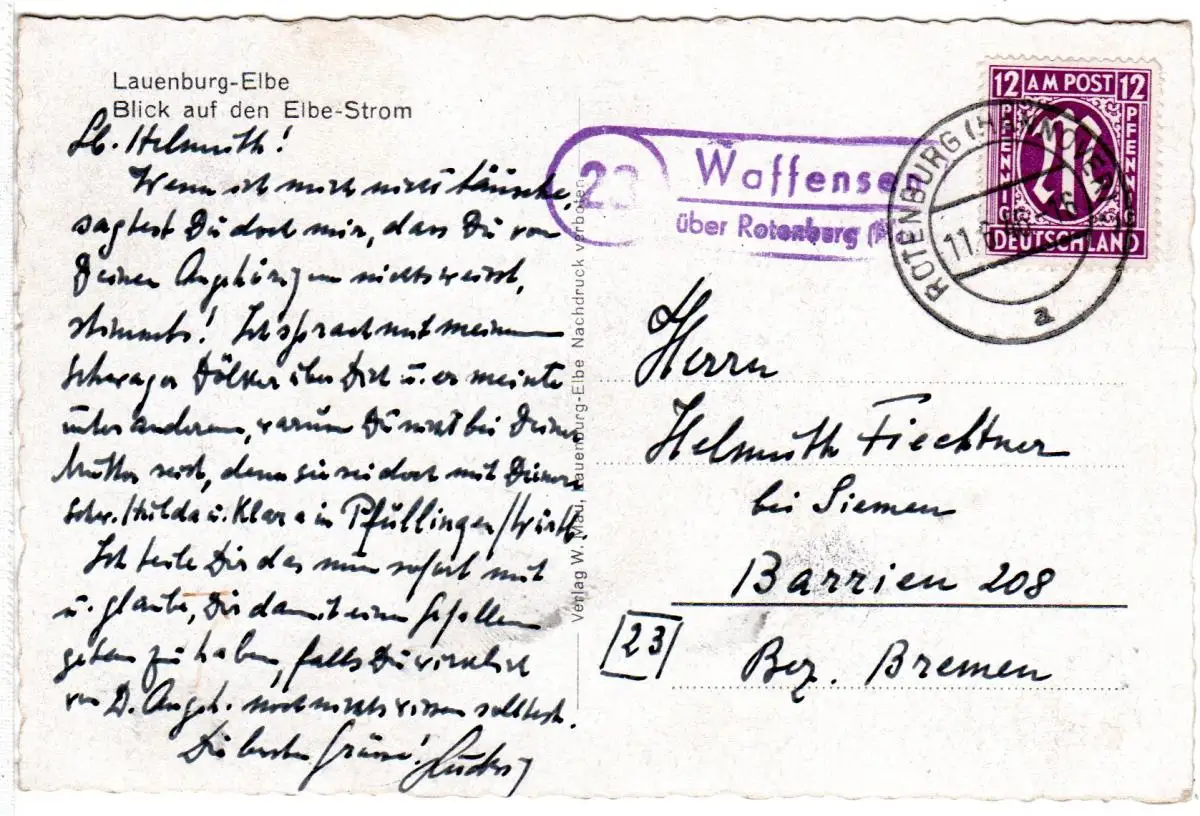 Lauenburg-Elbe
Blick auf den Elbe-Strom
Lb. Helmuth!
Wenn ich mich nicht täusche,
sagtest Du doch mir, dass Du von
Deinen Angehörigen nichts weisst,
stimmts! Ich sprach mit meinem
Schwager Dölker über Dich u. er meinte
unter anderem, warum Du nicht bei Deiner
Mutter seist, denn sie sei doch mit Deinen
Schw. Hilda u. Klara in Pfullingen/Württ.
Ich teile Dir das nun sofort mit
u. glaube, Dir damit einen Gefallen
getan zu haben, falls Du wirklich
von D. Angeh. noch nichts wissen solltest.
Die besten Grüsse!
Verlag W. Mau, Lauenburg-Elbe Nachdruck verboten
23
Waffensen
über Rotenburg
12 AM POST 12
PFENNIG
PFENNIG
DEUTSCHLAND
ROTENBURG (HANNOVER)
11.6.
a
Herrn
Helmuth Fiechtner
bei Siemen
Barrien 208
23
Bez. Bremen